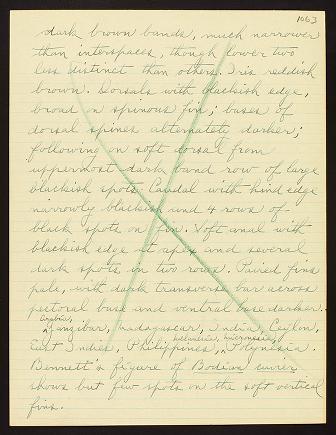 1063
dark brown bands, much narrower
than interspaces, though lower two
less distinct than others. Iris reddish
brown. Dorsals with blackish edge,
broad on spinous fin; bases of
dorsal spines alternately darker;
following on soft dorsal from
uppermost dark band row of large
blackish spots. Caudal with hind edge
narrowly blackish and 4 rows of
black spots on fin. Soft anal with
blackish edge at apex and several
dark spots in two rows. Paired fins
pale, with dark transverse bar across
pectoral base and ventral base darker.
Arabia,
Zanzibar, Madagascar, India, Ceylon,
Melanesia, Micronesia,
East Indies, Philippines, Polynesia.
Bennett's figure of Bodian
shows but few spots on the soft vertical
fins.